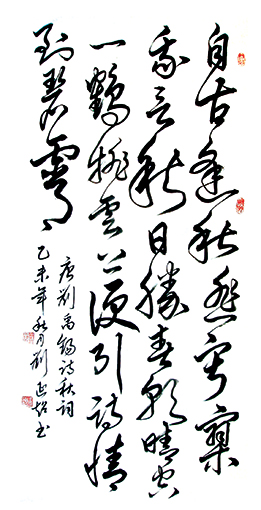 自古逢秋悲寂寥
我言秋日勝春朝晴空
一鶴排雲上便引诗情
到碧霄
唐刘禹锡诗秋词
乙未年秋月刘书